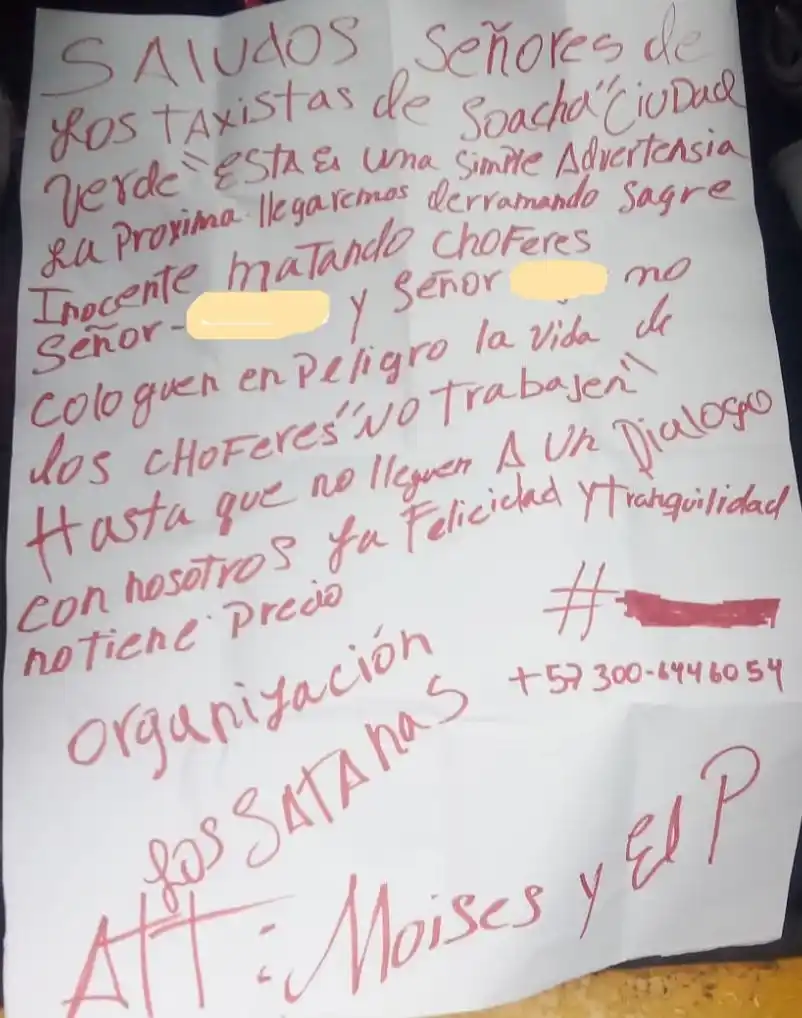 SAludos Señores de
Los TAxistas de Soacha "CiuDad
Verde" ESTA Es una Simple Advertensia
La Proxima llegaremos derramando Sagre
Inocente maTando choFeres
Señor- y Señor no
coloquen en Peligro la Vida de
los CHoFeres "NO Trabajen"
Hasta que no lleguen A Un Dialogo
con nosotros La Felicidad y Tranquilidad
no tiene Precio
#
+57 300-6446054
Organización
Los SATANas
ATT: Moises y El P